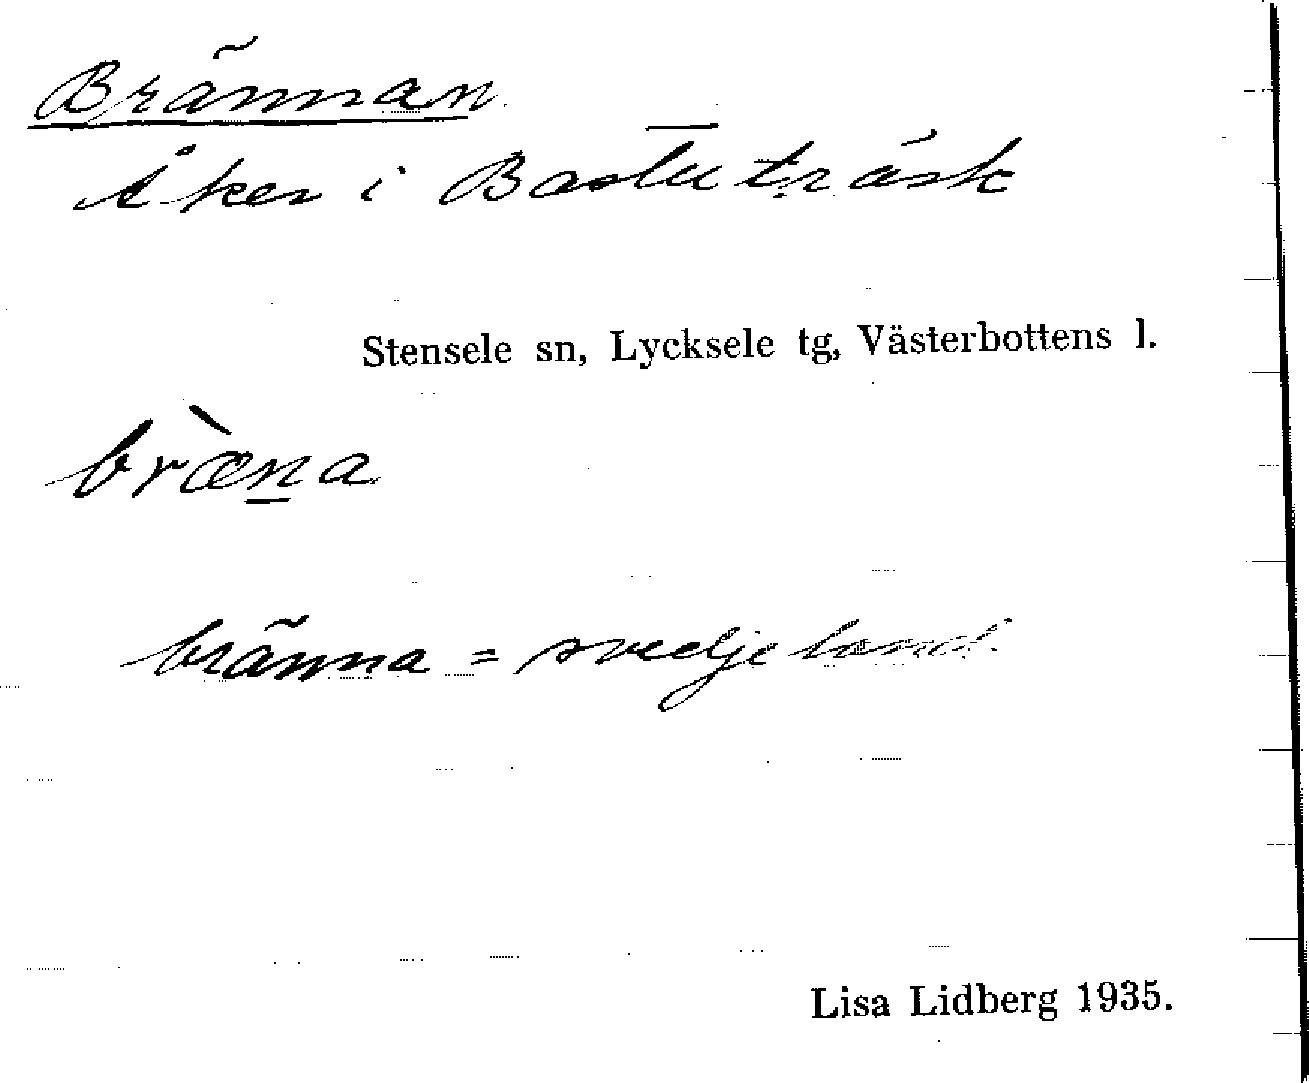 Brännan
Åker i Bastuträsk
Stensele sn, Lycksele tg, Västerbottens l.
bræ̀n̲a
bränna = svedjeland.
Lisa Lidberg 1935.